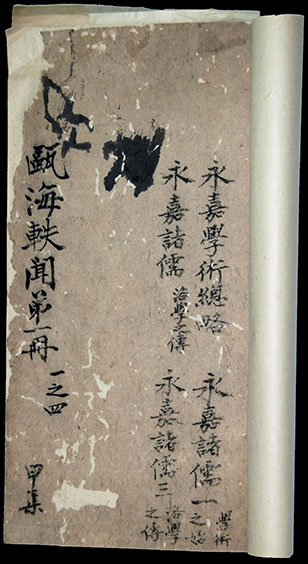 永嘉學術總略
永嘉諸儒一 學術之始
永嘉諸儒 洛學之傳
永嘉諸儒三 洛學之傳
甌海軼聞第一冊 一之四
甲集